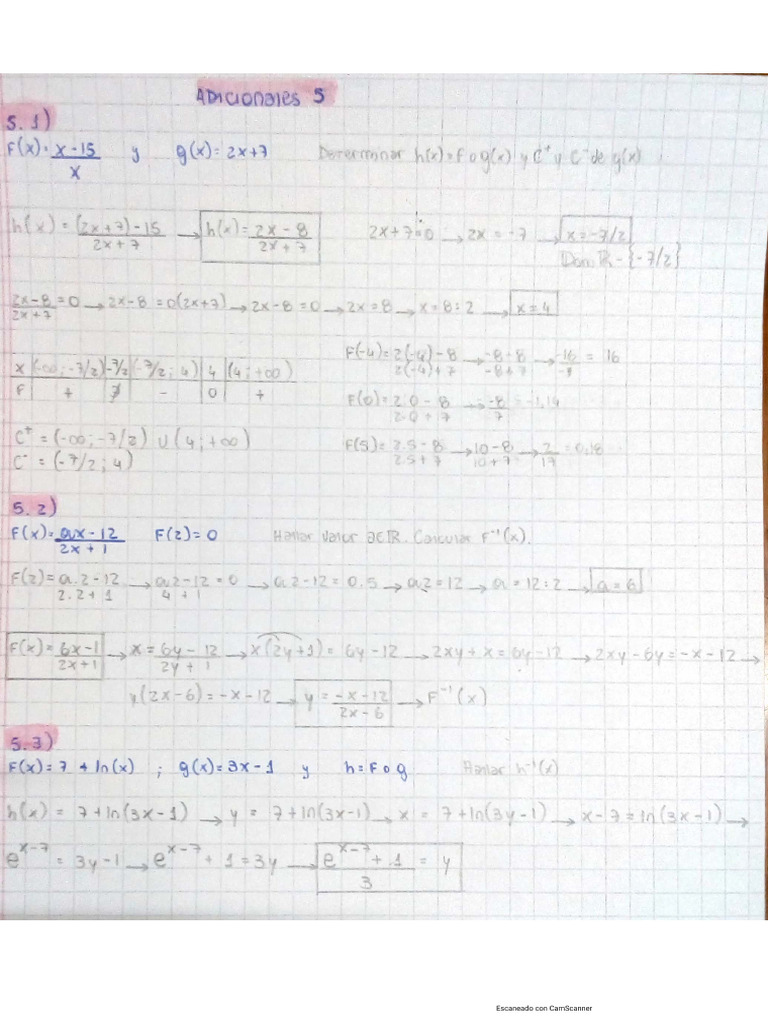 ADICIONALES 5
5.1)
F(x) = x-15/x y g(x) = 2x+7 Determinar h(x) = f o g(x) y C⁺ y C⁻ de g(x)
h(x) = (2x+7)-15/2x+7 → h(x) = 2x-8/2x+7 2x+7=0 → 2x = -7 → x = -7/2
Dom R - {-7/2}
2x-8/2x+7 = 0 → 2x-8 = 0(2x+7) → 2x-8 = 0 → 2x = 8 → x = 8:2 → x = 4
F(-4) = 2(-4)-8/2(-4)+7 → -8-8/-8+7 → -16/-1 = 16
x | (-∞; -7/2) | -7/2 | (-7/2; 4) | 4 | (4; +∞)
F | + | ∄ | - | 0 | +
F(0) = 2.0-8/2.0+7 → -8/7 = -1,14
C⁺ = (-∞; -7/2) ∪ (4; +∞)
F(5) = 2.5-8/2.5+7 → 10-8/10+7 → 2/17 = 0,18
C⁻ = (-7/2; 4)
5.2)
F(x) = ax-12/2x+1 F(2) = 0 Hallar valor a∈R. Calcular F⁻¹(x).
F(2) = a.2-12/2.2+1 → a2-12/4+1 = 0 → a2-12 = 0.5 → a2 = 12 → a = 12:2 → a = 6
F(x) = 6x-1/2x+1 → x = 6y-12/2y+1 → x(2y+1) = 6y-12 → 2xy+x = 6y-12 → 2xy-6y = -x-12 →
y(2x-6) = -x-12 → y = -x-12/2x-6 → F⁻¹(x)
5.3)
F(x) = 7+ln(x) ; g(x) = 3x-1 y h = F o g Hallar h⁻¹(x)
h(x) = 7+ln(3x-1) → y = 7+ln(3x-1) → x = 7+ln(3y-1) → x-7 = ln(3x-1) →
e^x-7 = 3y-1 → e^x-7 + 1 = 3y → e^x-7 + 1/3 = y
Escaneado con CamScanner